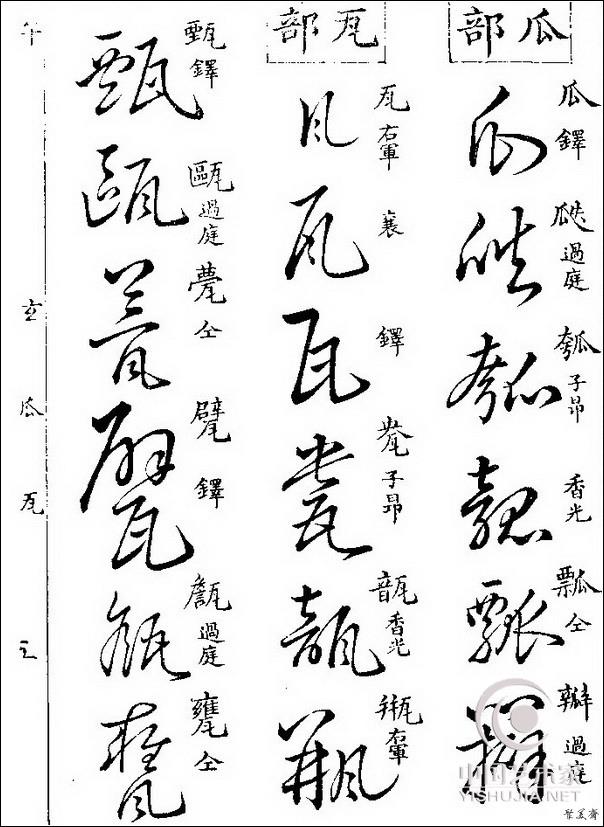 瓜部
瓜 鐸
瓞 過庭
瓠 子昂
香光
瓢 仝
瓣 過庭
瓦部
瓦 右軍
襄
鐸
瓽 子昂
瓿 香光
瓶 右軍
甄 鐸
甌 過庭
甍 仝
甓 鐸
甔 過庭
甕 仝
午
玄
瓜
瓦
中国艺术家
YISHUJIA.NET